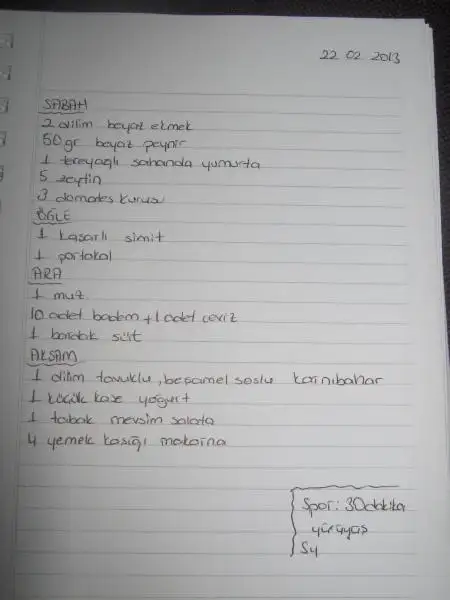 22 02 2013
SABAH
2 dilim beyaz ekmek
50 gr beyaz peynir
1 tereyağlı sahanda yumurta
5 zeytin
3 domates kurusu
ÖĞLE
1 kaşarlı simit
1 portakal
ARA
1 muz
10 adet badem + 1 adet ceviz
1 bardak süt
AKŞAM
1 dilim tavuklu, beşamel soslu karnıbahar
1 küçük kase yoğurt
1 tabak mevsim salata
4 yemek kaşığı makarna
Spor: 30 dakika
yürüyüş